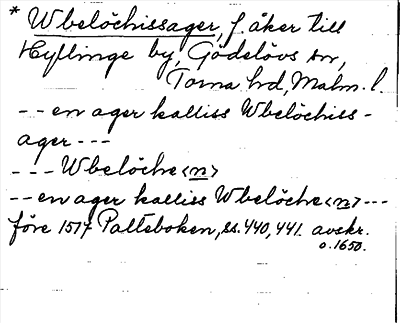 * Wbelöchissager, f. åker till
Hyllinge by, Gödelövs sn,
Torna hd, Malm. l.
-- en ager kalliss Wbelöchiss-
ager ---
--- Wbelöche<n>
-- en ager kalliss Wbelöche<n> ---
före 1517 Palteboken, ss. 440, 441. avskr.
o. 1650.